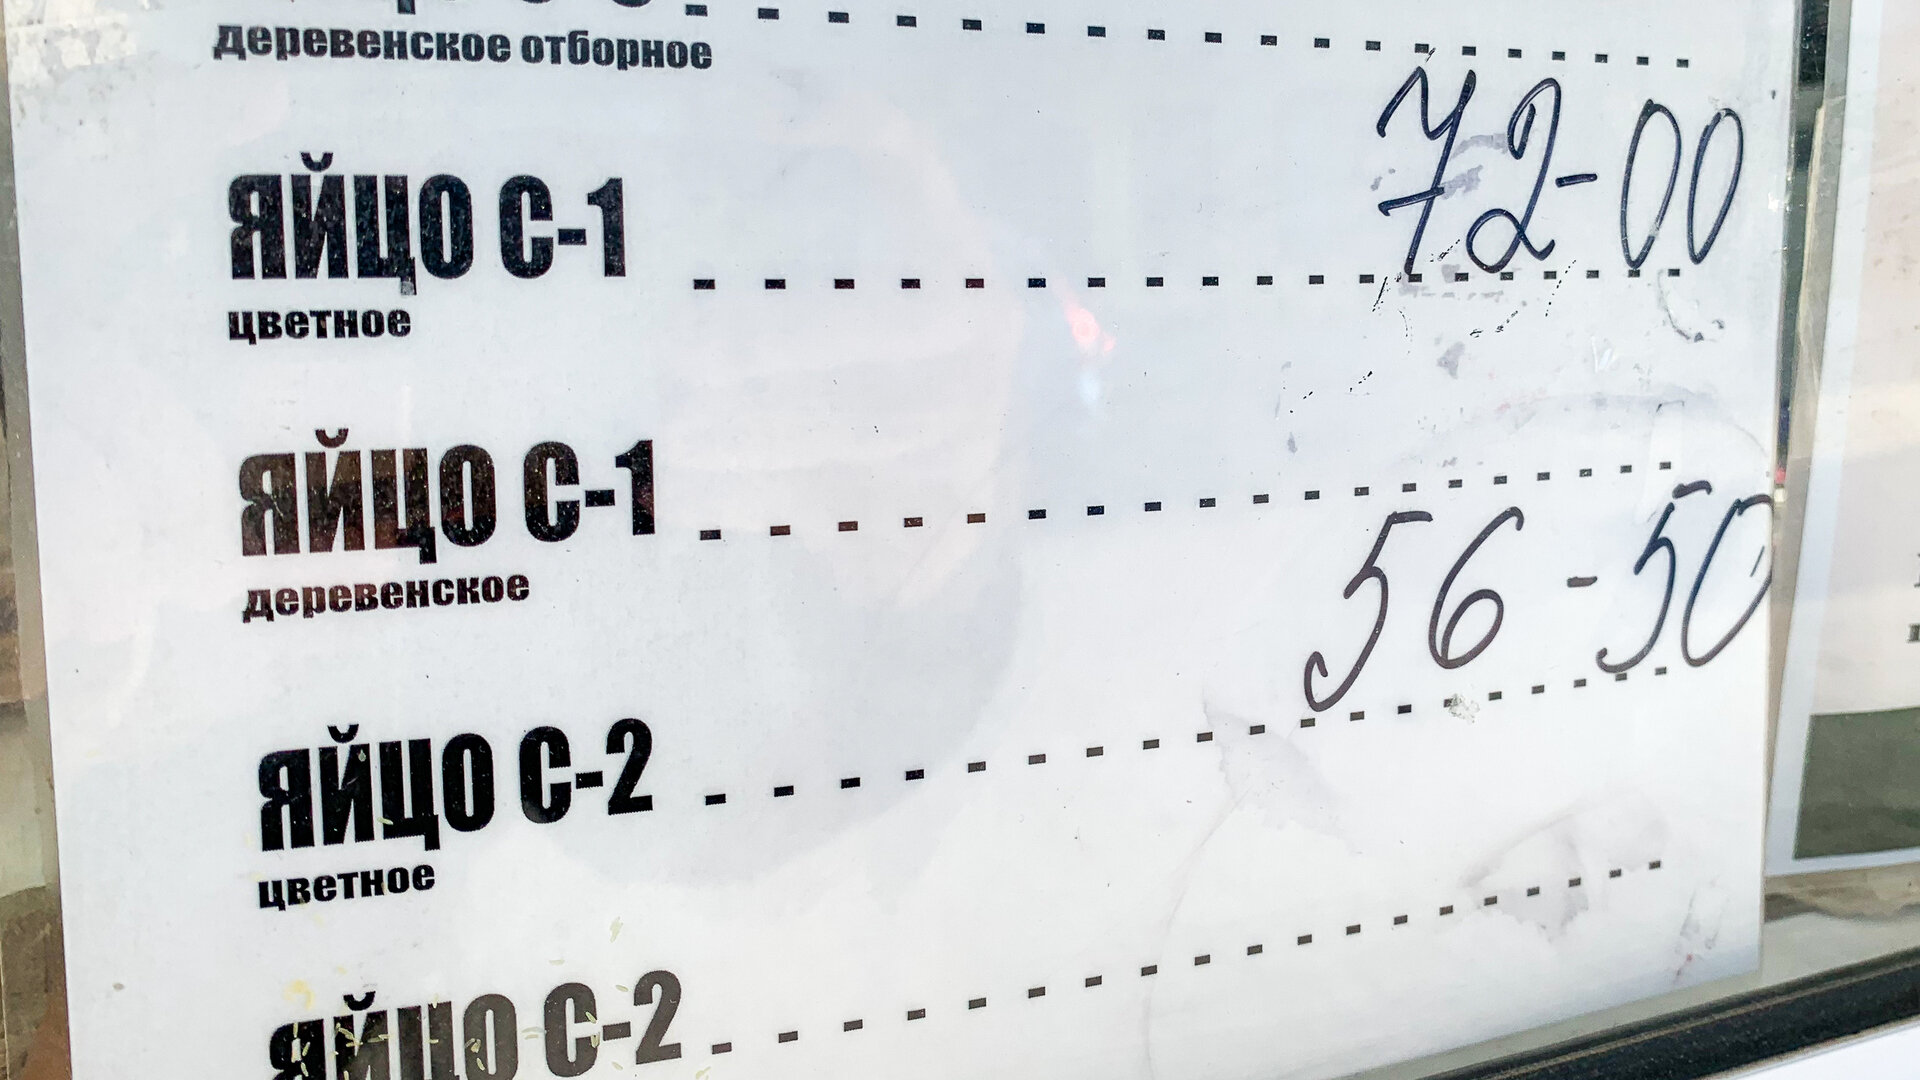 деревенское отборное
ЯЙЦО С-1 72-00
цветное
ЯЙЦО С-1
деревенское
ЯЙЦО С-2 56-50
цветное
ЯЙЦО С-2